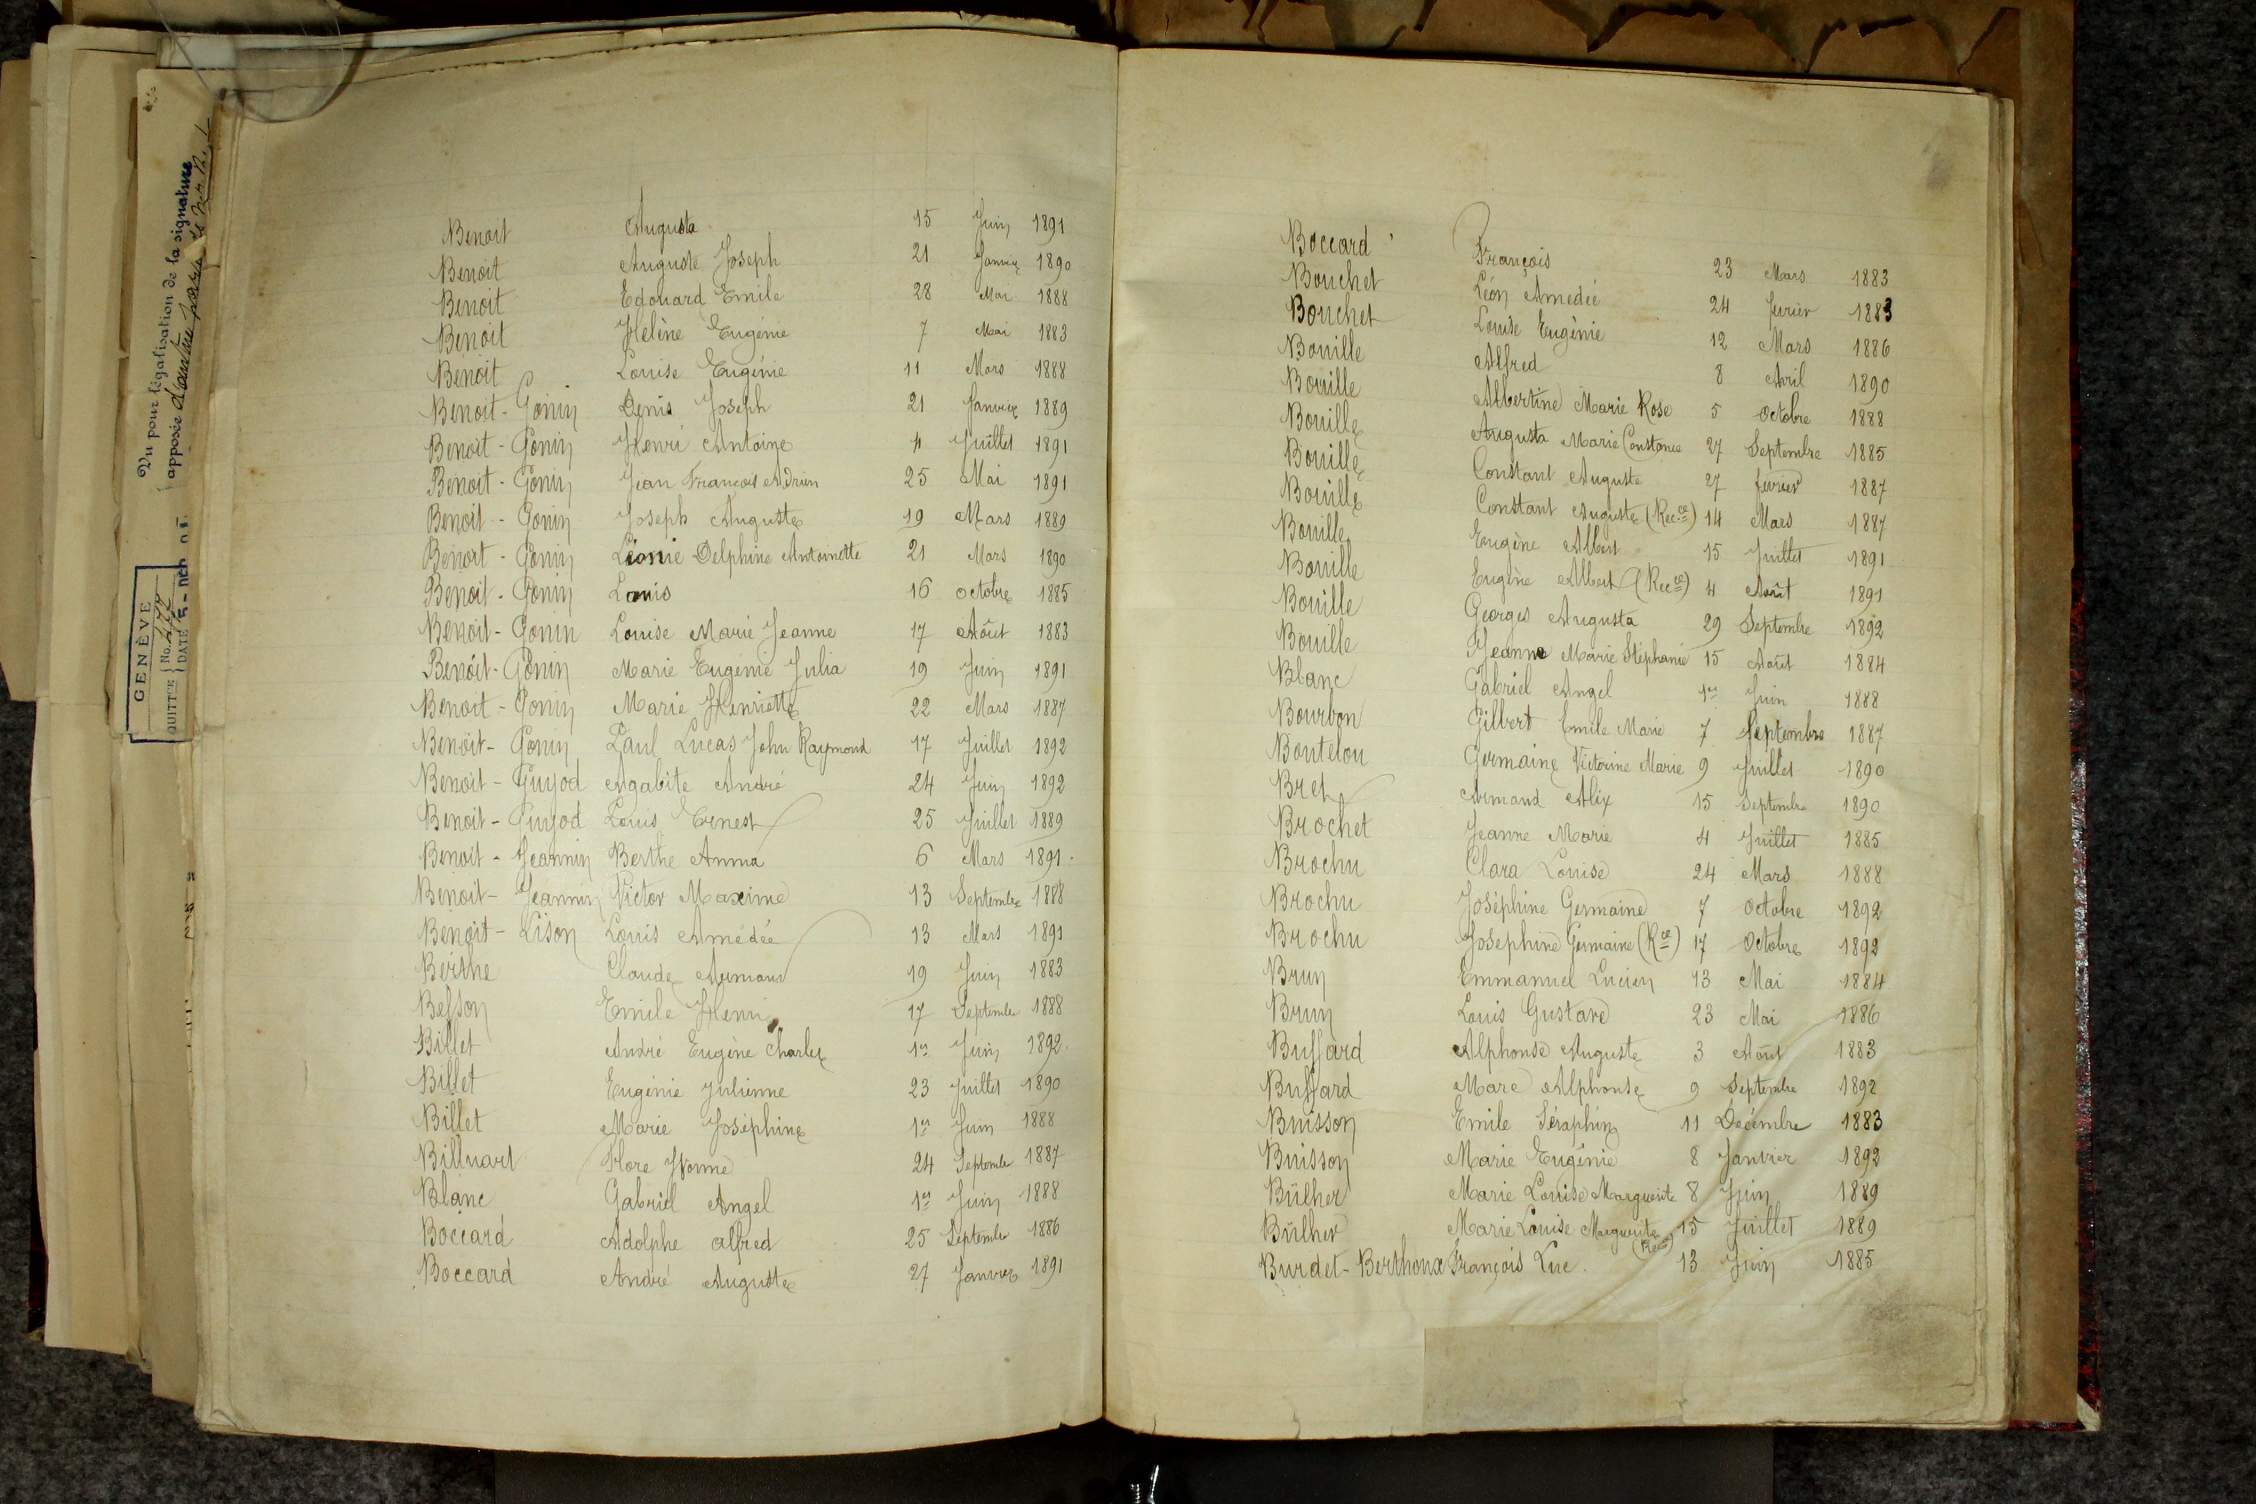 Vu pour légalisation de la signature
apposée
GENÈVE
QUITTCE No.
DATE
Benoit Augusta 15 Juin 1891
Benoit Auguste Joseph 21 Janvier 1890
Benoit Edouard Emile 28 Mai 1888
Benoit Hélène Eugénie 7 Mai 1883
Benoit Louise Eugénie 11 Mars 1888
Benoit - Gonin Denis Joseph 21 Janvier 1889
Benoit - Gonin Henri Antoine 4 Juillet 1891
Benoit - Gonin Jean François Adrien 25 Mai 1891
Benoit - Gonin Joseph Auguste 19 Mars 1889
Benoit - Gonin Léonie Delphine Antoinette 21 Mars 1890
Benoit - Gonin Louis 16 Octobre 1885
Benoit - Gonin Louise Marie Jeanne 17 Août 1883
Benoit - Gonin Marie Eugénie Julia 19 Juin 1891
Benoit - Gonin Marie Henriette 22 Mars 1887
Benoit - Gonin Paul Lucas John Raymond 17 Juillet 1892
Benoit - Guyod Agabite André 24 Juin 1892
Benoit - Guyod Louis Ernest 25 Juillet 1889
Benoit - Jeannin Berthe Anna 6 Mars 1891
Benoit - Jeannin Victor Maxime 13 Septembre 1888
Benoit - Lison Louis Amédée 13 Mars 1891
Berthe Claude Armand 19 Juin 1883
Besson Emile Henri 17 Septembre 1888
Billet André Eugène Charles 1er Juin 1892
Billet Eugénie Julienne 23 Juillet 1890
Billet Marie Joséphine 1er Juin 1888
Billuart Flore Yvonne 24 Septembre 1887
Blanc Gabriel Angel 1er Juin 1888
Boccard Adolphe Alfred 25 Septembre 1886
Boccard André Auguste 27 Janvier 1891
Boccard François 23 Mars 1883
Bouchet Léon Amédée 24 février 1883
Bouchet Louise Eugénie 12 Mars 1886
Bouille Alfred 8 Avril 1890
Bouille Albertine Marie Rose 5 Octobre 1888
Bouille Augusta Marie Constance 27 Septembre 1885
Bouille Constant Auguste 27 février 1887
Bouille Constant Auguste (Rec.ce) 14 Mars 1887
Bouille Eugène Albert 15 Juillet 1891
Bouille Eugène Albert (Recce) 4 Août 1891
Bouille Georges Augusta 29 Septembre 1892
Bouille Jeanne Marie Stéphanie 15 Août 1884
Blanc Gabriel Angel 1er Juin 1888
Bourbon Gilbert Emile Marie 7 Septembre 1887
Boutelou Germaine Victorine Marie 9 Juillet 1890
Bret Armand Alix 15 Septembre 1890
Brochet Jeanne Marie 4 Juillet 1885
Brochu Clara Louise 24 Mars 1888
Brochu Joséphine Germaine 7 Octobre 1892
Brochu Joséphine Germaine (Rce) 17 Octobre 1892
Brun Emmanuel Lucien 13 Mai 1884
Brun Louis Gustave 23 Mai 1886
Buffard Alphonse Auguste 3 Août 1883
Buffard Marc Alphonse 9 Septembre 1892
Buisson Emile Séraphin 11 Décembre 1883
Buisson Marie Eugénie 8 Janvier 1892
Bülher Marie Louise Marguerite 8 Juin 1889
Bülher Marie Louise Marguerite (Rce) 15 Juillet 1889
Burdet - Berthoux François Luc. 13 Juin 1885